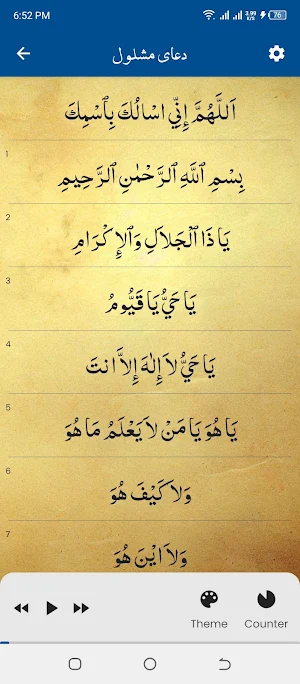 6:52 PM
3.99 K/s
76
دعای مشلول
اَللَّهُمَّ إِنِّي اسْالُكَ بِٱسْمِكَ
1
بِسْمِ ٱللَّهِ ٱلرَّحْمٰنِ ٱلرَّحِيمِ
2
يَا ذَا ٱلْجَلاَلِ وَٱلإِكْرَامِ
3
يَا حَيُّ يَا قَيُّومُ
4
يَا حَيُّ لاَ إِلٰهَ إِلاَّ انتَ
5
يَا هُوَ يَا مَنْ لاَ يَعْلَمُ مَا هُوَ
6
وَلاَ كَيْفَ هُوَ
7
وَلاَ ايْنَ هُوَ
Theme
Counter